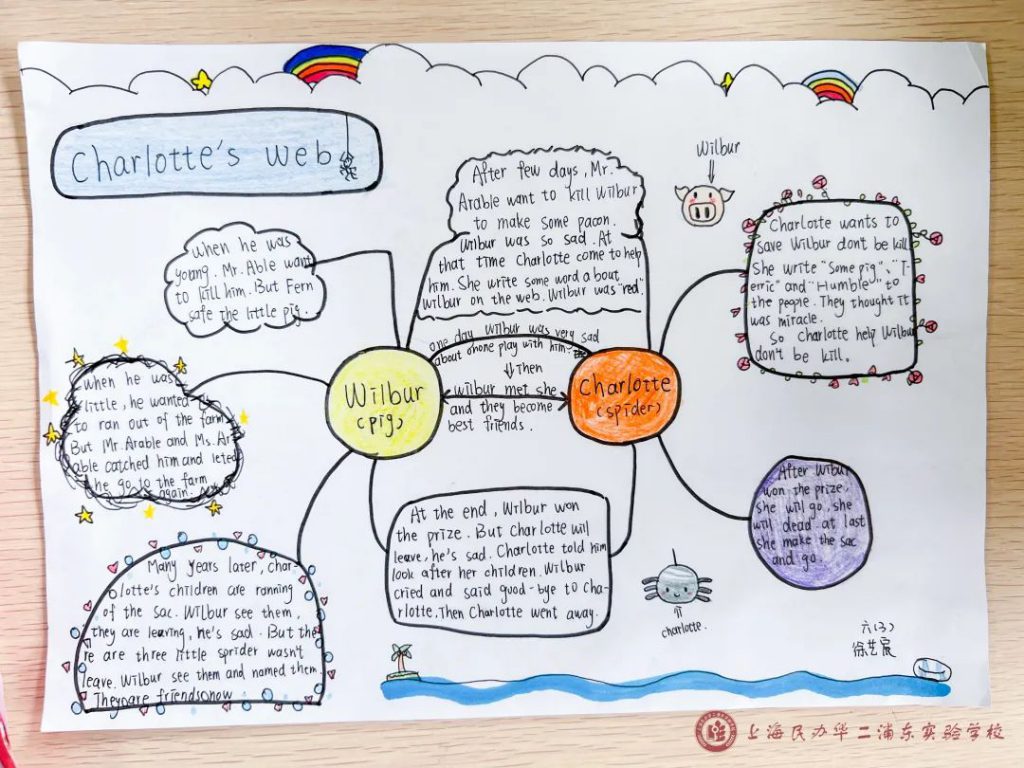 Charlotte's web
When he was
young. Mr. Able want
to kill him. But Fern
safe the little pig.
When he was
little, he wanted
to ran out of the farm.
But Mr. Arable and Ms. Ar
able catched him and leted
he go to the farm
again.
Many years later, char
lotte's children are ranning
of the sac. Wilbur see them,
they are leaving, he's sad. But the
re are three little sprider wasn't
leave. Wilbur see them and named them
Theyare friendsonow
Wilbur
(pig)
After few days, Mr.
Arable want to kill Wilbur
to make some pacon.
Wilbur was so sad. At
that time Charlotte come to help
him. She write some word about
wilbur on the web. Wilbur was "red".
one day Wilbur was very sad
about onone play with him.
⇓ Then
wilbur met she
and they become
best friends.
At the end, Wilbur won
the prize. But Charlotte will
leave, he's sad. Charlotte told him
look after her children. Wilbur
cried and said good-bye to Cha-
rlotte. Then Charlotte went away.
Charlotte
(spider)
Wilbur
Charlotte wants to
save Wilbur dont be kill
She write "Some pig"、"T-
erric" and "Humble" to
the people. They thought it
was miracle.
So charlotte help Wilbur
don't be kill.
After Wilbur
won the prize,
she will go, she
will dead at last
she make the sac
and go.
charlotte.
六(3)
徐艺宸
上海民办华二浦东实验学校